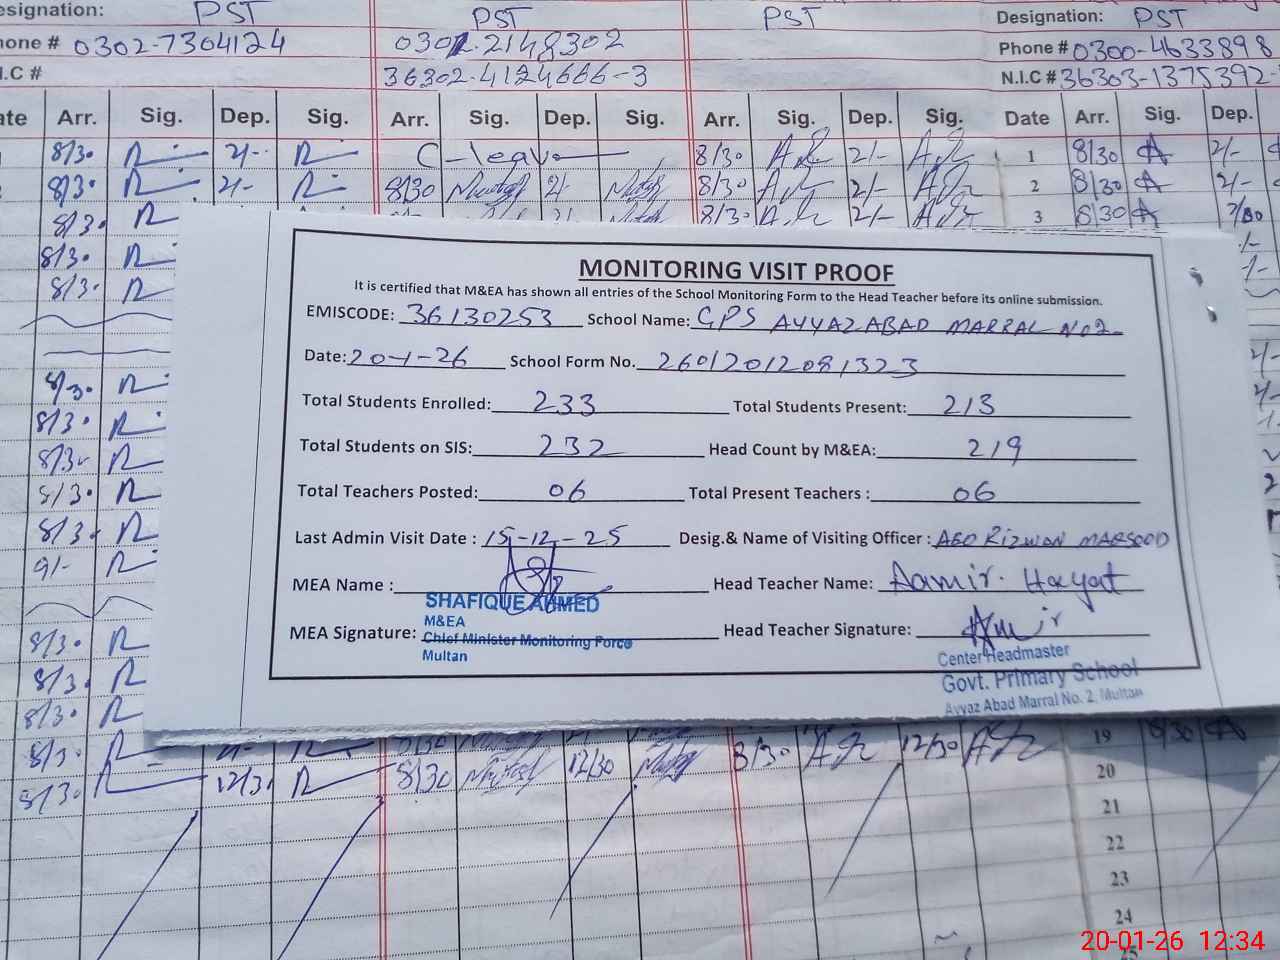 esignation: PST PST PST Designation: PST
hone # 0302-7304124 0302.2148302 Phone # 0300-4633898
I.C # 36302-4124666-3 N.I.C # 36303-1375392-
ate Arr. Sig. Dep. Sig. Arr. Sig. Dep. Sig. Arr. Sig. Dep. Sig. Date Arr. Sig. Dep.
8/30 2/- C-leave 8/30 2/- 1 8/30 2/-
8/30 2/- 8/30 2/- 8/30 2/- 2 8/30 2/-
8/30 8/30 2/- 3 8/30
8/30
8/30
8/30
8/30
8/30
8/30
8/30
9/-
8/30
8/30
8/30
MONITORING VISIT PROOF
It is certified that M&EA has shown all entries of the School Monitoring Form to the Head Teacher before its online submission.
EMISCODE: 36130253 School Name: GPS AYYAZABAD MARRAL No2
Date: 20-1-26 School Form No. 26012012081323
Total Students Enrolled: 233 Total Students Present: 213
Total Students on SIS: 232 Head Count by M&EA: 219
Total Teachers Posted: 06 Total Present Teachers : 06
Last Admin Visit Date : 15-12-25 Desig.& Name of Visiting Officer : AEO RIZWAN MAQSOOD
MEA Name : Head Teacher Name: Aamir. Hayat
SHAFIQUE AHMED
M&EA
MEA Signature: Chief Minister Monitoring Force Head Teacher Signature: Amir
Multan
Center Headmaster
Govt. Primary School
Ayyaz Abad Marral No. 2, Multan
8/30 2/- 8/30 8/30 12/30 19 8/30
8/30 12/30 8/30 12/30 20
21
22
23
24
25
20-01-26 12:34